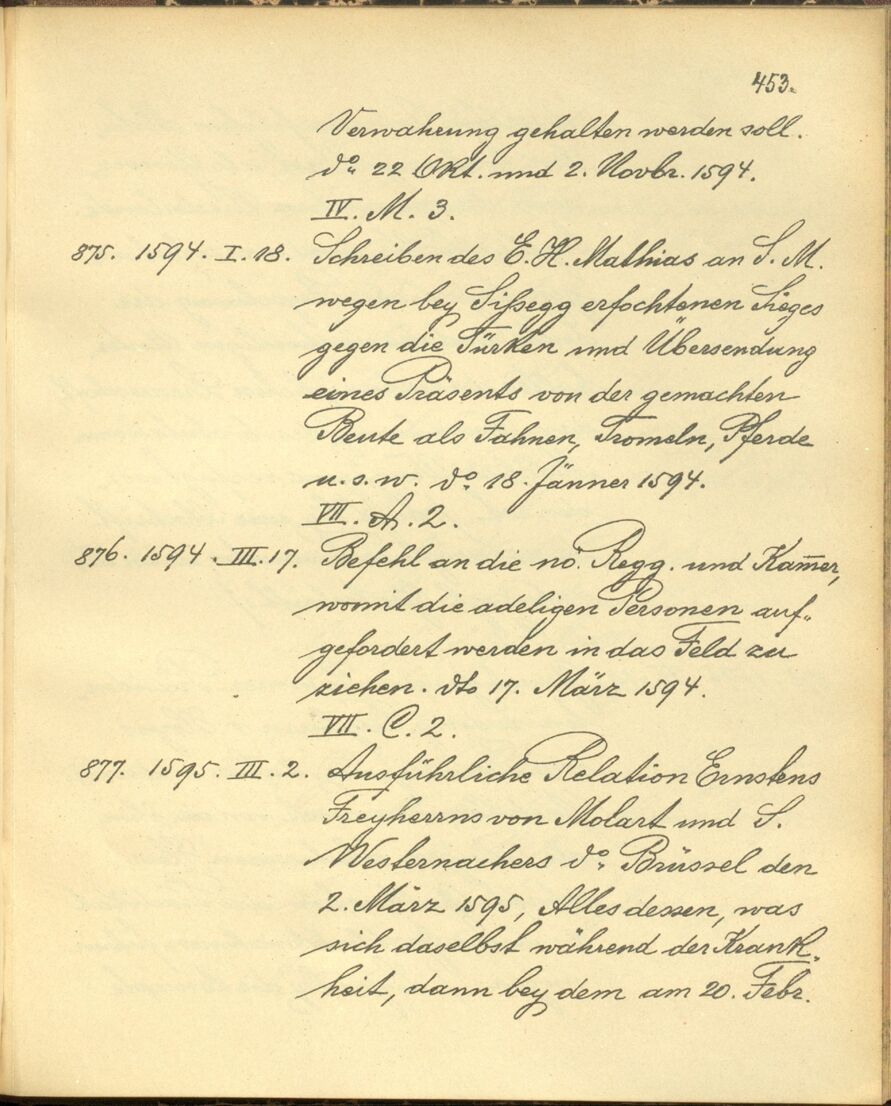 453.
Verwahrung gehalten werden soll.
dº 22 Okt. und 2. Novbr. 1594.
IV. M. 3.
875. 1594. I. 18. Schreiben des E. H. Mathias an S. M.
wegen bey Sißegg erfochtenen Sieges
gegen die Türken und Übersendung
eines Präsents von der gemachten
Beute als Fahnen, Tromeln, Pferde
u. s. w. dº 18. Jänner 1594.
VII. A. 2.
876. 1594. III. 17. Befehl an die nö. Regg. und Kam̅er,
womit die adeligen Personen auf„
gefordert werden in das Feld zu
ziehen. dto 17. März 1594.
VII. C. 2.
877. 1595. III. 2. Ausführliche Relation Ernstens
Freyherrns von Molart und S.
Westernachers dº Brüssel den
2. März 1595, Alles dessen, was
sich daselbst während der Krank„
heit, dann bey dem am 20. Febr.